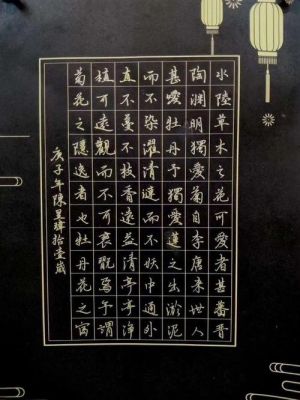 水陸草木之花可愛者甚蕃晉
陶淵明獨愛菊自李唐来世人
甚愛牡丹予獨愛蓮之出淤泥
而不染濯清漣而不妖中通外
直不蔓不枝香遠益清亭亭淨
植可遠觀而不可褻翫焉予謂
菊花之隱逸者也牡丹花之富
庚子年陳拾壹歲